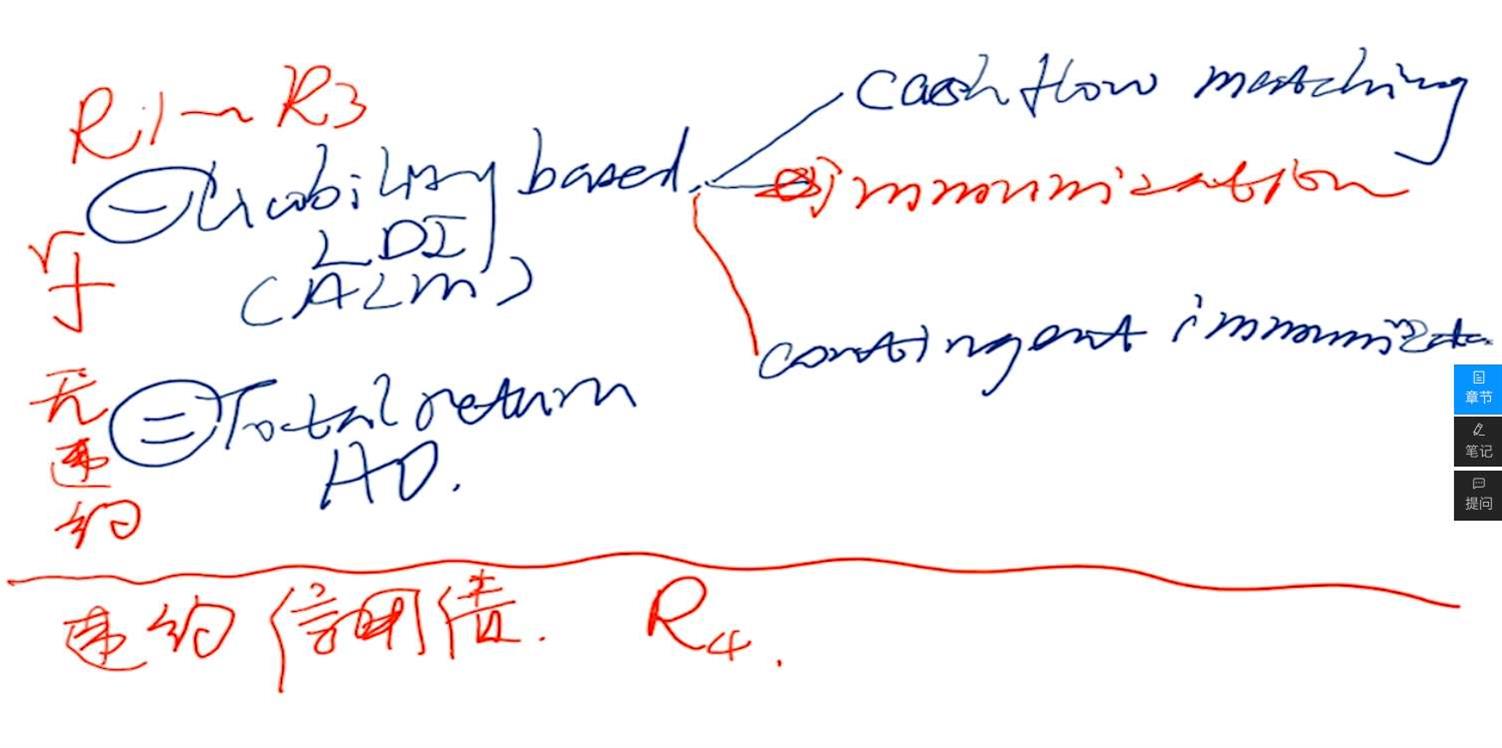 R1~R3
cash flow matching
㊀ Liability based
immunization
LDI
(ALM)
contingent immunizat
㊁ Total return
AO.
无违约
违约 信用债. R4.
章节
笔记
提问